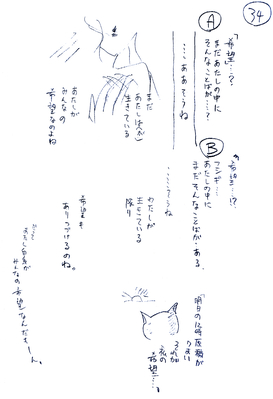 34
Ⓐ
「希望…?
まだあたしの中に
そんなことばが…?
……ああそうね
まだ
あたしは
生きている
あたしが
みんなの
希望なのよね
Ⓑ
「希望…!?
フシギ…
あたしの中に
まだそんなことばが・ある。
……そうね
わたしが
生きている
限り
希望も
ありつづけるのね。
だって
あたし自身が
みんなの希望なんだもーん。
「明日の12時
私の
希望…。